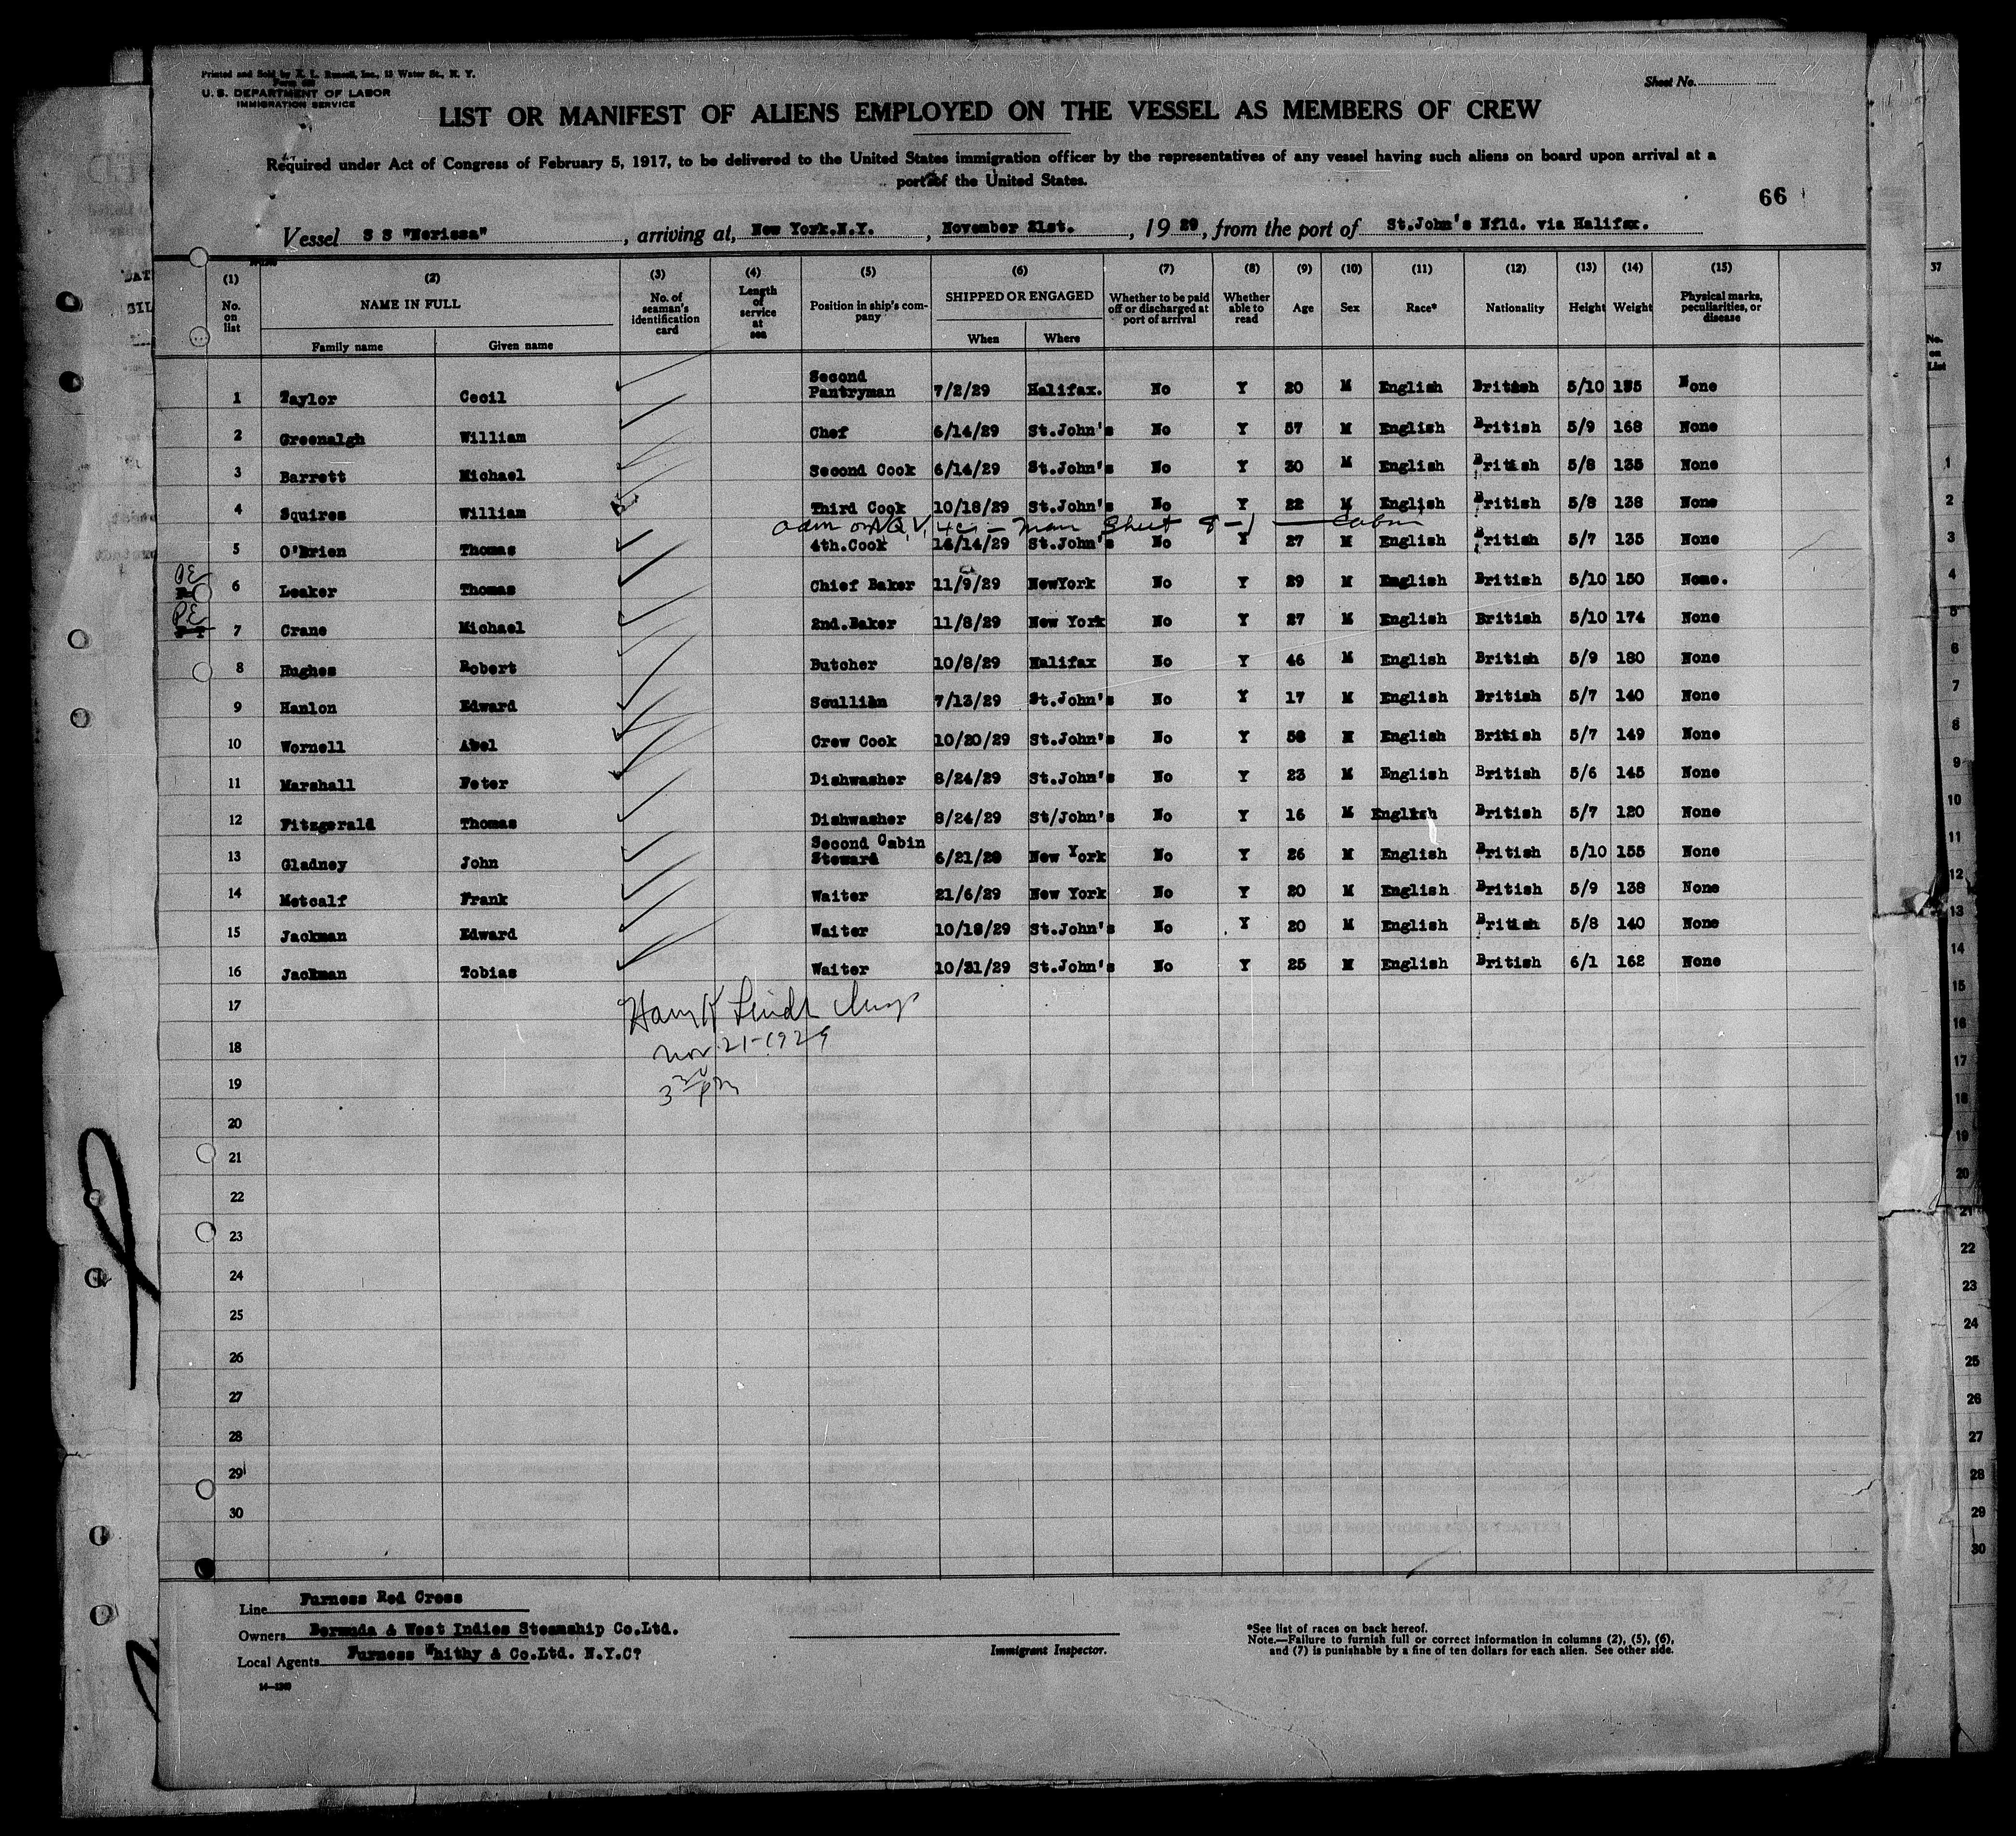 Printed and Sold by E. L. Russell, Inc., 13 Water St., N. Y.
U. S. DEPARTMENT OF LABOR
IMMIGRATION SERVICE
Sheet No.
LIST OR MANIFEST OF ALIENS EMPLOYED ON THE VESSEL AS MEMBERS OF CREW
Required under Act of Congress of February 5, 1917, to be delivered to the United States immigration officer by the representatives of any vessel having such aliens on board upon arrival at a
port of the United States.
66
Vessel S S "Nerissa", arriving at, New York.N.Y., November 21st., 1929, from the port of St.John's Nfld. via Halifax.
(1) (2) (3) (4) (5) (6) (7) (8) (9) (10) (11) (12) (13) (14) (15)
No. on list NAME IN FULL No. of seaman's identification card Length of service at sea Position in ship's company SHIPPED OR ENGAGED Whether to be paid off or discharged at port of arrival Whether able to read Age Sex Race* Nationality Height Weight Physical marks, peculiarities, or disease
Family name Given name When Where
1 Taylor Cecil Second Pantryman 7/2/29 Halifax. No Y 20 M English British 5/10 None
2 Greenalgh William Chef 6/14/29 St.John's No Y 57 M English British 5/9 168 None
3 Barrett Michael Second Cook 6/14/29 St.John's No Y 30 M English British 5/8 135 None
4 Squires William Third Cook 10/18/29 St.John's No Y 22 M English British 5/8 138 None
Sheet 8-1
5 O'Brien Thomas 4th.Cook St.John's No Y 27 M English British 5/7 135 None
PE 6 Leaker Thomas Chief Baker 11/9/29 NewYork No Y 29 M English British 5/10 150 None.
PE 7 Crane Michael 2nd.Baker 11/8/29 New York No Y 27 M English British 5/10 174 None
8 Hughes Robert Butcher 10/8/29 Halifax No Y 46 M English British 5/9 180 None
9 Hanlon Edward Scullian 7/13/29 St.John's No Y 17 M English British 5/7 140 None
10 Wornell Abel Crew Cook 10/20/29 St.John's No Y 58 M English British 5/7 149 None
11 Marshall Peter Dishwasher 8/24/29 St.John's No Y 23 M English British 5/6 145 None
12 Fitzgerald Thomas Dishwasher 8/24/29 St/John's No Y 16 M English British 5/7 120 None
13 Gladney John Second Cabin Steward 6/21/29 New York No Y 26 M English British 5/10 155 None
14 Metcalf Frank Waiter 21/6/29 New York No Y 20 M English British 5/9 138 None
15 Jackman Edward Waiter 10/18/29 St.John's No Y 20 M English British 5/8 140 None
16 Jackman Tobias Waiter 10/31/29 St.John's No Y 25 M English British 6/1 162 None
17
18 Nov 21-1929
19 3 30 pm
20
21
22
23
24
25
26
27
28
29
30
Line Furness Red Cross
Owners Bermuda & West Indies Steamship Co.Ltd.
Local Agents Furness Whithy & Co.Ltd. N.Y.C?
Immigrant Inspector.
*See list of races on back hereof.
Note.—Failure to furnish full or correct information in columns (2), (5), (6),
and (7) is punishable by a fine of ten dollars for each alien. See other side.